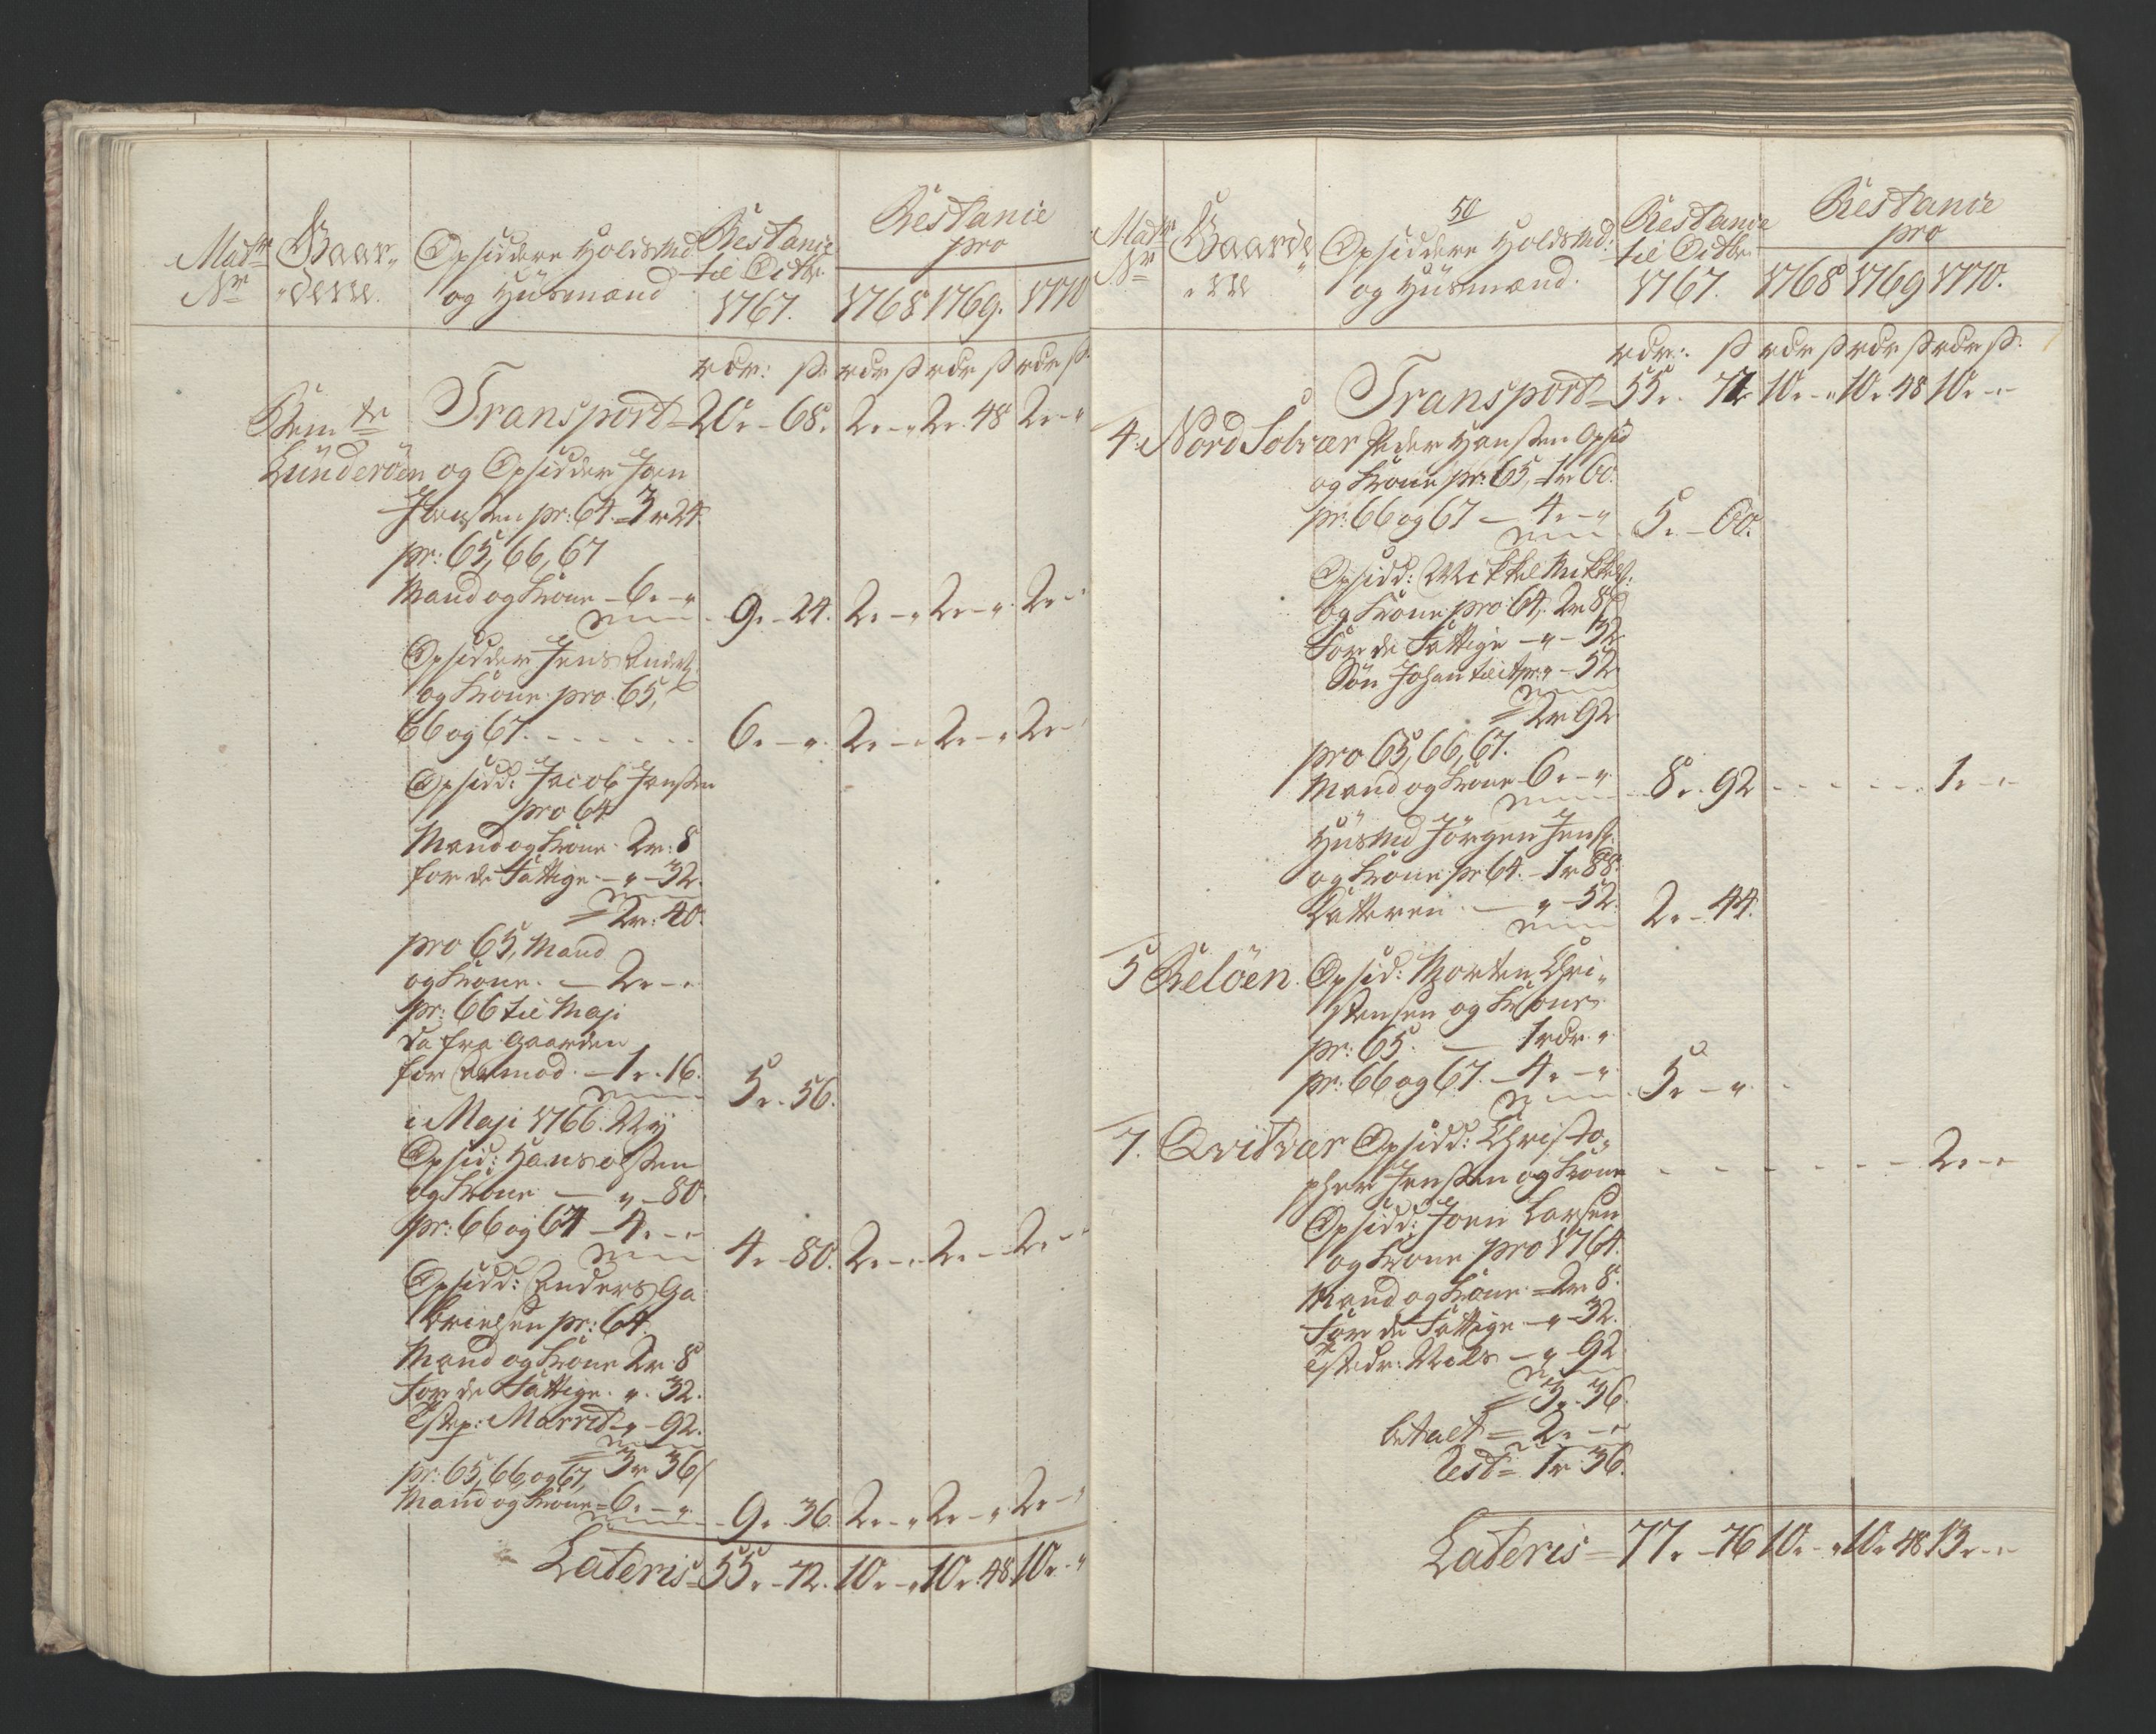 Matr
Nr
Gaar„
„derne.
Opsiddere Holdsmd
og Huusmænd
Restance
til Octbr.
1767.
Restance
pro
1768 1769. 1770
rdr: ß rdr ß rdr ß rdr ß
Transport = 20. - 68. 2. - „ 2. 48 2. - „
Lunderöen og Opsidder Joen
Jensen pr: 64. 3 r 24.
pr: 65, 66, 67
Mand og Kone - 6. - „ 9. - 24. 2. - „ 2. - „ 2. - „
Opsidder Jens Anders:
og Kone pro 65,
66 og 67. - - - - - - 6. - „ 2. - „ 2. - „ 2. -
Opsidd: Jacob Jensen
pro 64
Mand og Kone 2 r: 8
for de Fattige - „ - 32.
= 2 r: 40.
pro 65, Mand
og Kone. - 2. - „
pr: 66 til Maji
da fra Gaarden
for Armod. - 1. - 16. 5. - 56.
i Maji 1766. Ny
Opsid: Hans Olsen
og Kone - „ - 80
pr: 66 og 67 - 4. - „ 4. - 80. 2. - „ 2. - 2. - „
Opsidd: Anders Ga
brielsen pr: 64.
Mand og Kone 2 r 8
for de Fattige. „. 32.
Tstp: Marrit - „ - 92.
= 3 r 36/
pr: 65, 66, og 67,
Mand og Kone = 6. - „ 9. - 36. 2. - „ 2. - „ 2. - „
Lateris = 55. - 72. 10. - „ 10. 48 10. - „
50
Matr
Nr
Gaarde
„rne
Opsiddere Holdsmd:
og Huusmænd.
Restance
til Octbr
1767.
Restance
pro
1768 1769 1770.
rdr: ß rdr ß rdr ß rdr ß.
Transport = 55. 72 10. - „ 10. 48 10. - „
4. Nord Solvær Peder Hansen Opsid
og Kone pr: 65, 1 r 60.
pr: 66 og 67 - 4. - „ 5. - 60.
Opsidd: Mikkel Mikkels:
og Kone pro 64, 2 r 8
for de Fattige - „ - 32
Sön Johan - „ - 52
= 2 r 92
pro 65, 66, 67.
Mand og Kone - 6. - „ 8. 92 - - - - - - 1. - „
Huusmd Jörgen Jens:
og Kone pr 64. - 1 r 88.
Datteren - „ - 52. 2. - 44.
5 Relöen. Opsid: Morten Chri„
stensen og Kone
pr: 65. - 1 rdr. „
pr: 66 og 67. - 4. - „ 5. - „ -
7. Qvitvær Opsidd: Christo„
pher Jensen og Kone - - - - - - 2. - „
Opsidd: Joen Larsen
og Kone pro 1764.
Mand og Kone = 2 r 8.
for de Fattige - „ - 32.
Tstedr: Nils - „ - 92
= 3. 36.
betalt = 2. - „
Rest = 1 r 36.
Lateris = 77. - 76 10. - „ 10. 48 13. - „